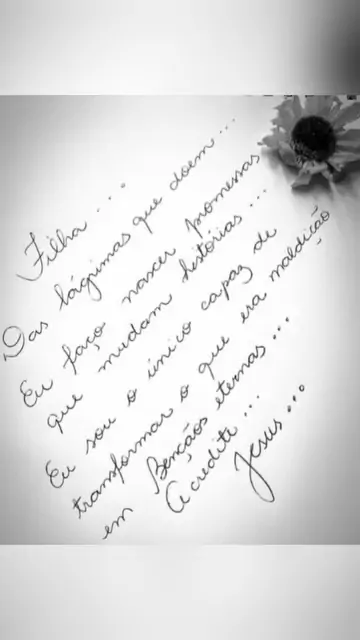 Filha...
Das lágrimas que doem...
Eu faço nascer promessas
que mudam histórias...
Eu sou o único capaz de
transformar o que era maldição
em Bençãos eternas...
Acredite...
Jesus...